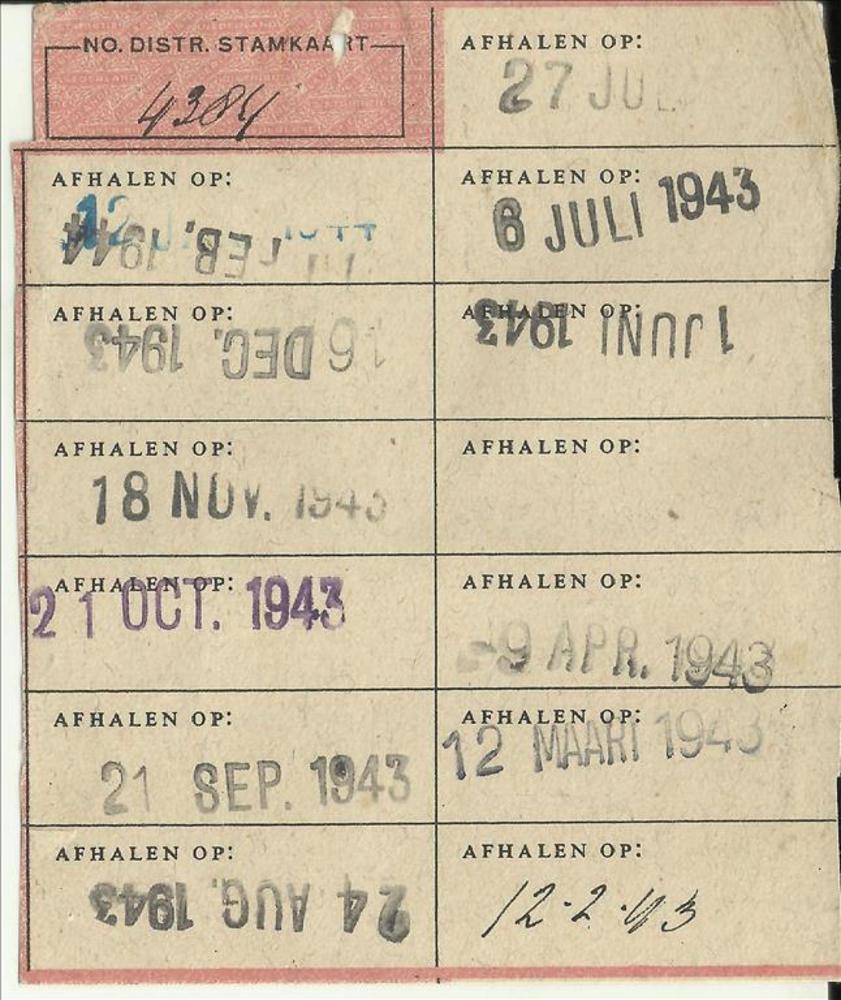 NO. DISTR. STAMKAART
4384
AFHALEN OP:
27 JUL
AFHALEN OP:
12
FEB. 1944
AFHALEN OP:
6 JULI 1943
AFHALEN OP:
16 DEC. 1943
AFHALEN OP:
1 JUNI 1943
AFHALEN OP:
18 NOV. 1943
AFHALEN OP:
AFHALEN OP:
21 OCT. 1943
AFHALEN OP:
-9 APR. 1943
AFHALEN OP:
21 SEP. 1943
AFHALEN OP:
12 MAART 1943
AFHALEN OP:
24 AUG. 1943
AFHALEN OP:
12-2-43